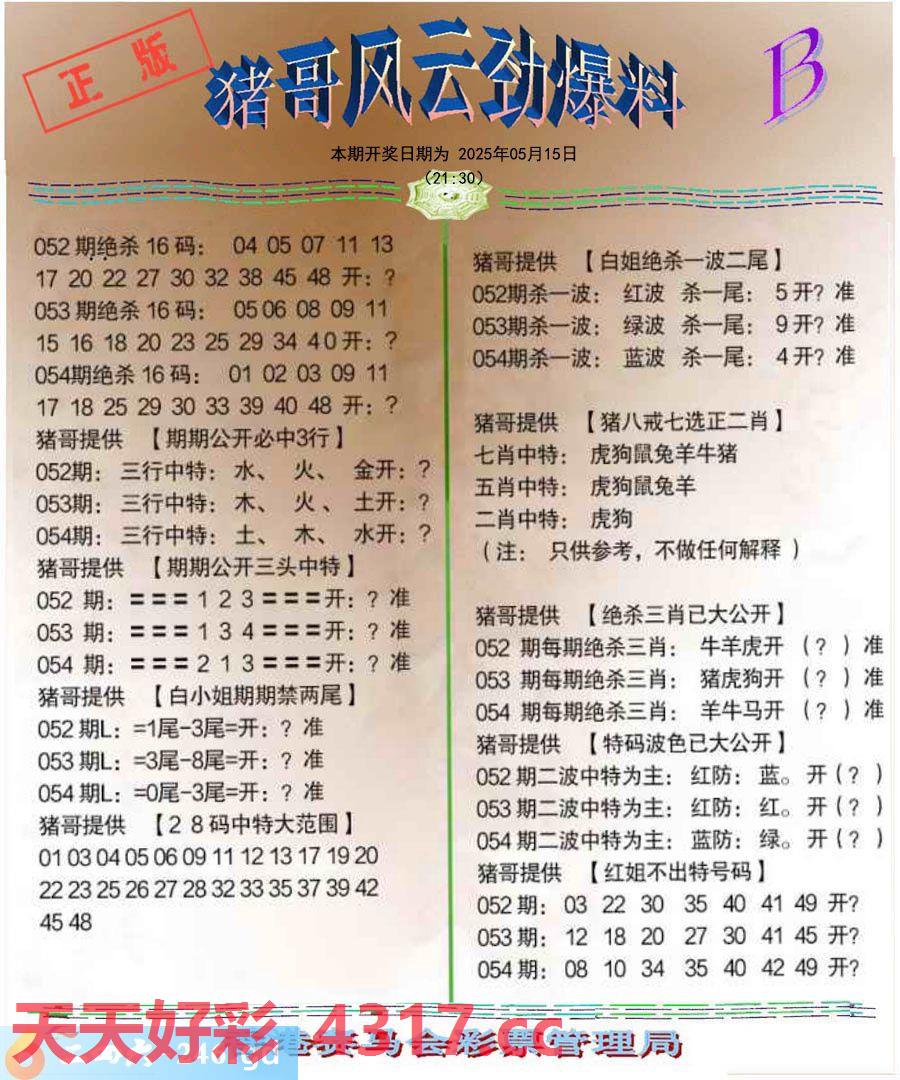 正版
猪哥风云劲爆料
B
本期开奖日期为 2025年05月15日
（21:30）
052 期绝杀 16 码： 04 05 07 11 13
17 20 22 27 30 32 38 45 48 开：?
053 期绝杀 16 码： 05 06 08 09 11
15 16 18 20 23 25 29 34 40 开：?
054期绝杀 16 码： 01 02 03 09 11
17 18 25 29 30 33 39 40 48 开：?
猪哥提供 【期期公开必中3行】
052期： 三行中特： 水、 火、 金开：?
053期： 三行中特： 木、 火、 土开：?
054期： 三行中特： 土、 木、 水开：?
猪哥提供 【期期公开三头中特】
052 期：===1 2 3===开：? 准
053 期：===1 3 4===开：? 准
054 期：===2 1 3===开：? 准
猪哥提供 【白小姐期期禁两尾】
052期L：=1尾-3尾=开：? 准
053期L：=3尾-8尾=开：? 准
054期L：=0尾-3尾=开：? 准
猪哥提供 【28码中特大范围】
01 03 04 05 06 09 11 12 13 17 19 20
22 23 25 26 27 28 32 33 35 37 39 42
45 48
猪哥提供 【白姐绝杀一波二尾】
052期杀一波： 红波 杀一尾： 5开? 准
053期杀一波： 绿波 杀一尾： 9开? 准
054期杀一波： 蓝波 杀一尾： 4开? 准
猪哥提供 【猪八戒七选正二肖】
七肖中特： 虎狗鼠兔羊牛猪
五肖中特： 虎狗鼠兔羊
二肖中特： 虎狗
（注： 只供参考，不做任何解释 ）
猪哥提供 【绝杀三肖已大公开】
052 期每期绝杀三肖： 牛羊虎开 （? ）准
053 期每期绝杀三肖： 猪虎狗开 （? ）准
054 期每期绝杀三肖： 羊牛马开 （? ）准
猪哥提供 【特码波色已大公开】
052 期二波中特为主：红防：蓝。开（? ）
053 期二波中特为主：红防：红。开（? ）
054 期二波中特为主：蓝防：绿。开（? ）
猪哥提供 【红姐不出特号码】
052 期： 03 22 30 35 40 41 49 开?
053 期： 12 18 20 27 30 41 45 开?
054 期： 08 10 34 35 40 42 49 开?
天天好彩 4317.cc
港赛马会彩票管理局